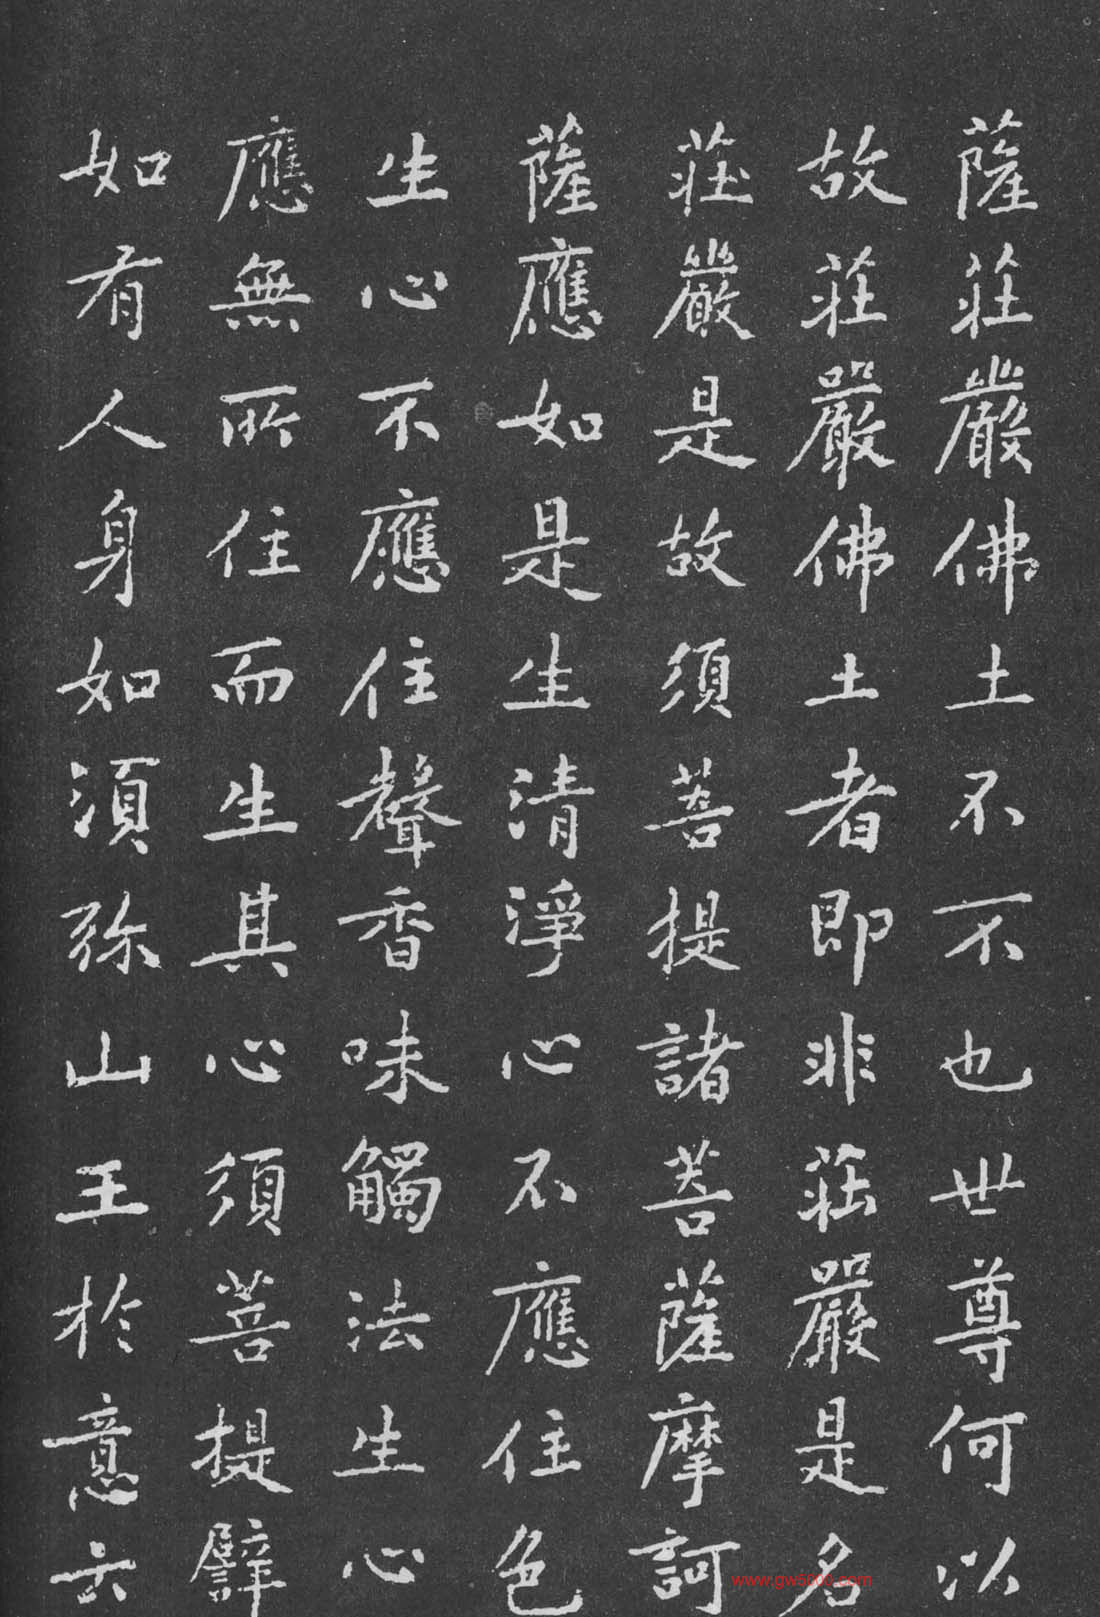 薩莊嚴佛土不不也世尊何以
故莊嚴佛土者即非莊嚴是名
莊嚴是故須菩提諸菩薩摩訶
薩應如是生清淨心不應住色
生心不應住聲香味觸法生心
應無所住而生其心須菩提譬
如有人身如須弥山王於意云
www.gw5800.com